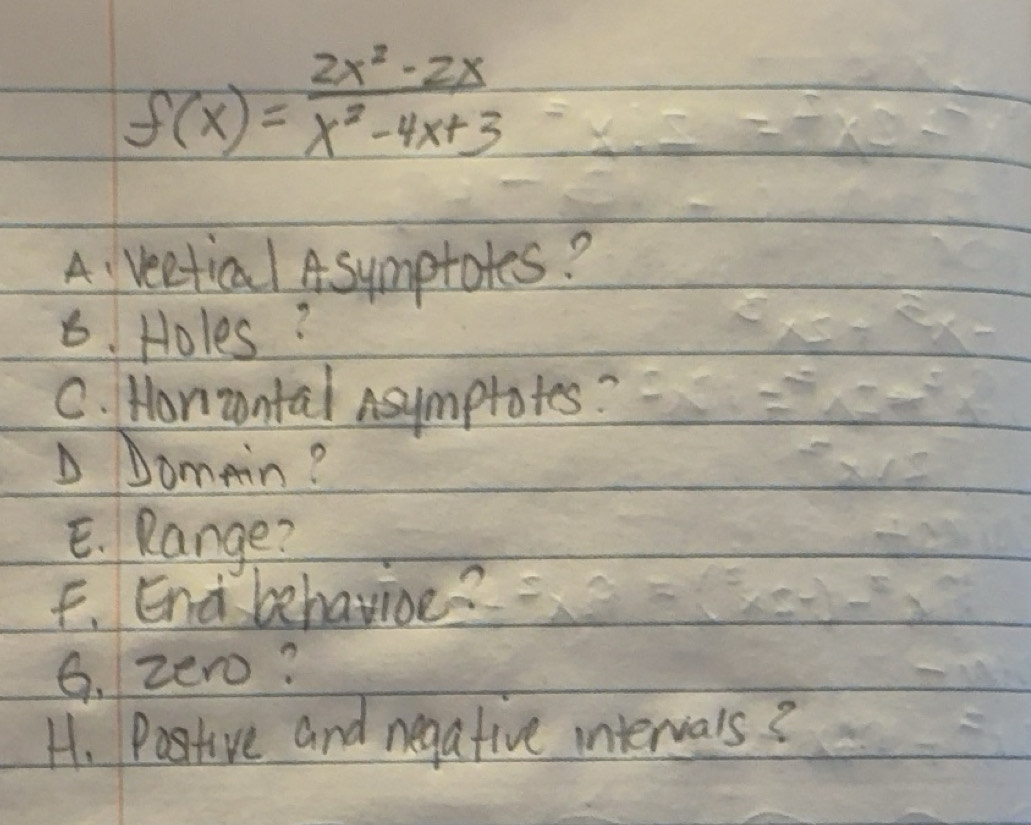 f(x) = 2x² - 2x / x² - 4x + 3
A. Vertical Asymptotes?
B. Holes?
C. Horizontal Asymptotes?
D Domain?
E. Range?
F. End behavior?
G. zero?
H. Positive and negative intervals?